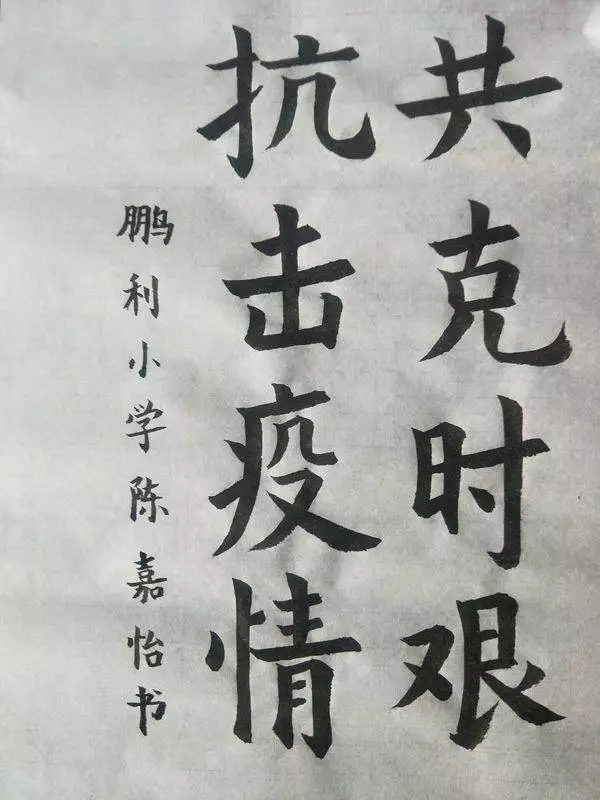 共克时艰
抗击疫情
鹏利小学陈嘉怡书